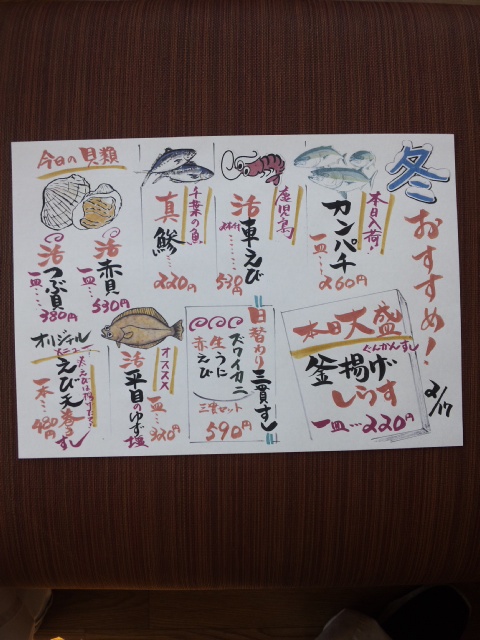 冬
おすすめ！
2/17
本日入荷！
カンパチ
一皿…260円
鹿児島
活車えび
一皿……530円
千葉の魚
真鯵
……220円
今日の貝類
活赤貝
一皿…530円
活つぶ貝
一皿……380円
本日大盛
ぐんかんずし
釜揚げ
しらす
一皿…220円
日替わり三貫すし
ズワイガニ
生うに
赤えび
三貫セット
590円
オススメ
活平目のゆず塩
一皿…320円
オリジナル
メニュー
えび天巻きずし
一本…480円